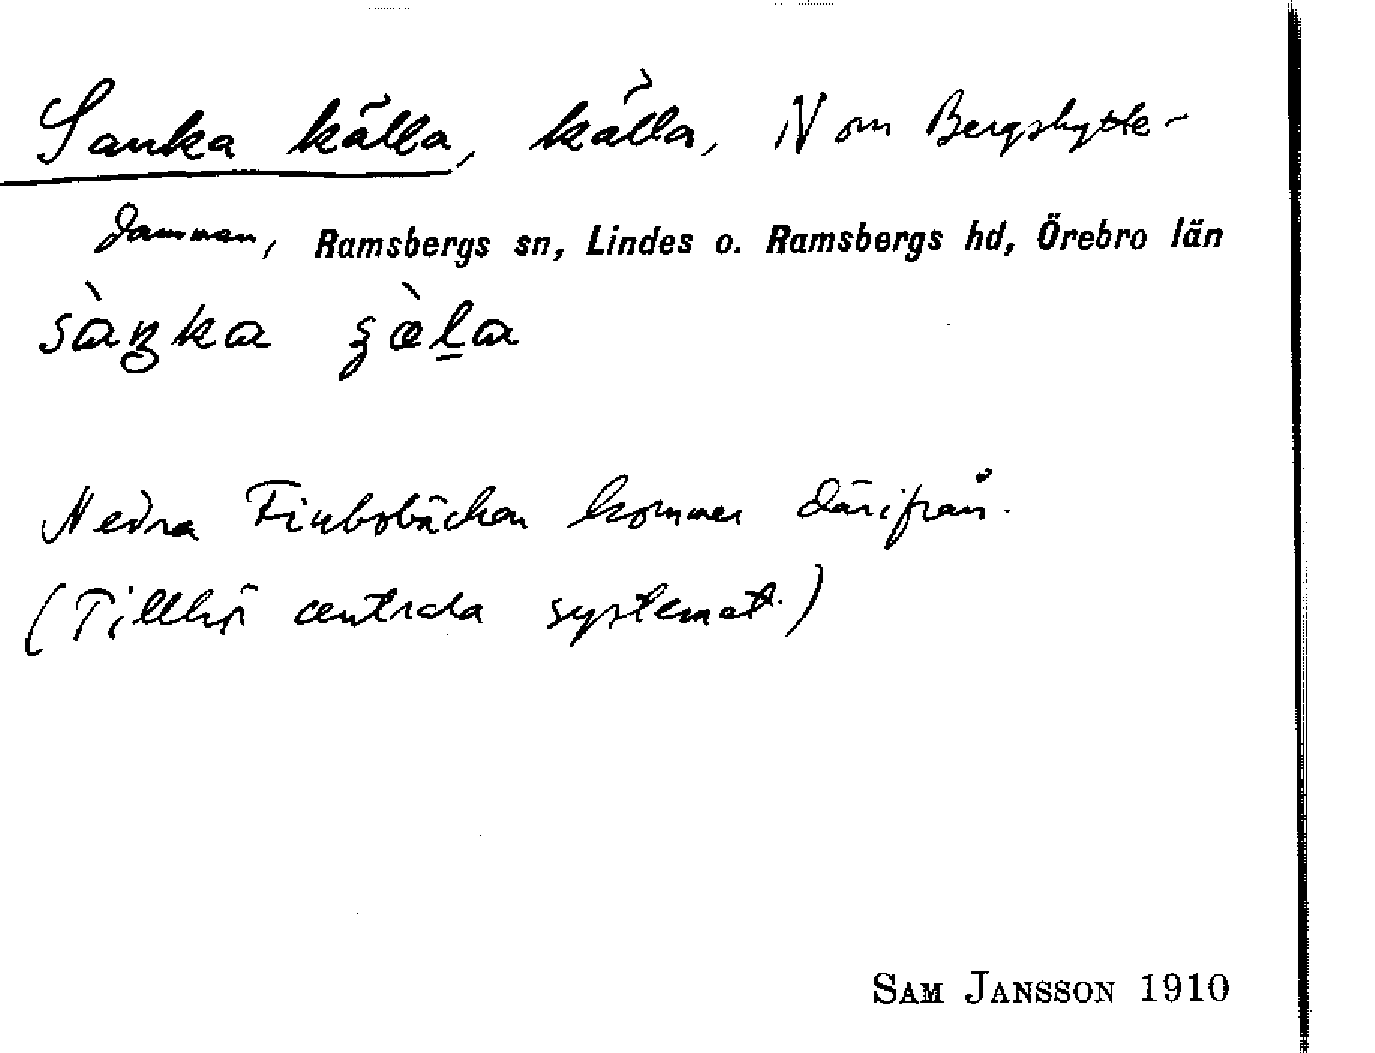 Sanka källa, källa, N om Bergshytte-
dammen, Ramsbergs sn, Lindes o. Ramsbergs hd, Örebro län
Nedra Finbobäcken kommer därifrån.
(Tillhör centrala systemet.)
SAM JANSSON 1910